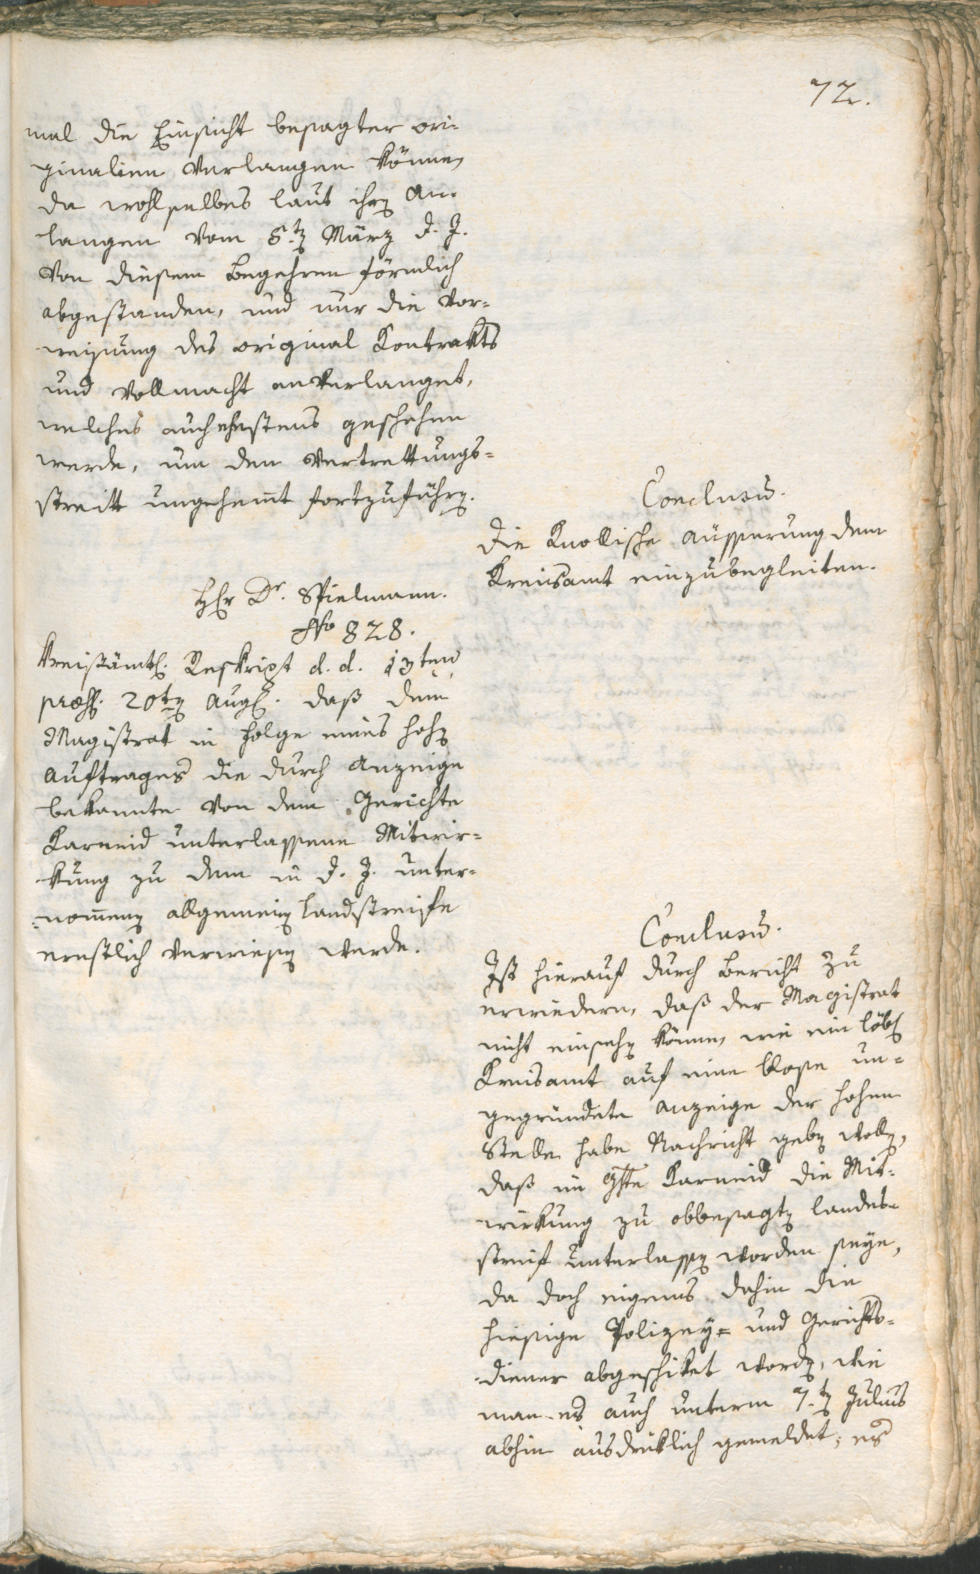 72.
mal die Einsicht besagter ori-
ginalien verlangen könne,
da wohlselbes laut ihrer An-
langen vom 8.ten März d. J.
von diesem Begehren förmlich
abgestanden, und nur die Vor-
weisung des original Kontrakts
und Vollmacht anverlanget,
welches auch ehestens geschehen
werde, um den Vertrettungs-
streitt ungehemt fortzuführen.
Conclusum.
Die Knollische Äusserung dem
Kreisamt einzubegleiten.
Herr Dr. Spielmann.
No 828.
Kreisämtl. Reskript d. d. 13ten
præs. 20ten Aug. daß dem
Magistrat in Folge eines hohen
Auftrages die durch Anzeige
bekannte von dem Gerichte
Karneid unterlassene Mitwir-
kung zu dem in d. J. unter-
nommenen allgemeinen Landstreife
ernstlich verwiesen werde.
Conclusum.
Ist hierauf durch Bericht zu
erwiedern, daß der Magistrat
nicht einsehen könne, wie ein löbl.
Kreisamt auf eine blosse un-
gegründete Anzeige der hohen
Stelle habe Nachricht geben wollen,
daß im Gerichte Karneid die Mit-
wirkung zu obbesagten Landes-
streif unterlassen worden seye,
da doch eigens dahin die
hiesige Polizey- und Gerichts-
diener abgeschiket worden, wie
man es auch unterm 7.ten Julius
abhin ausdrüklich gemeldet; es